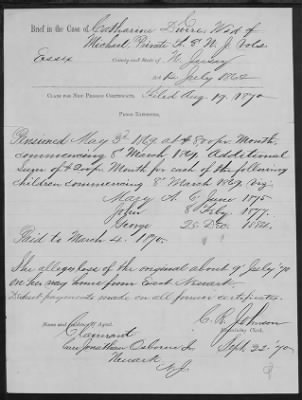 Brief in the Case of Catharine Dwire Wid of
Michael, Private L. 8 N. J. Vols
Essex County and State of N. Jersey
Act July 1862
Claim for New Pension Certificate. Filed Aug 19. 1870
Prior Evidence.
Pensioned May 3d 1869 at $8.00 pr Month.
commencing 8" March 1869. Additional
Sum of $2 00 pr Month for each of the following
children commencing 8" March 1869, viz,
Mary A. 6 June 1875
John 8 Feby 1877.
George 25 Dec. 1880.
Paid to March 4. 1870.
She alleges loss of the original about 9 July '70
on her way home from Newark.
payments made on all former certificates.
Name and of Agent. C. B. Johnson
Claimant Examining Clerk.
Care Jonathan Osborne Sr Sept. 22 '70
Newark
N.J.